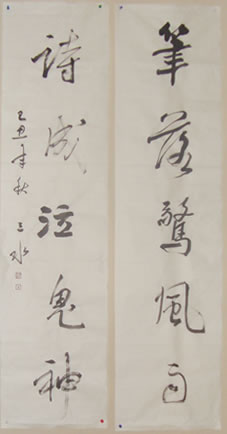 筆落驚風雨
詩成泣鬼神
己丑年秋 三水